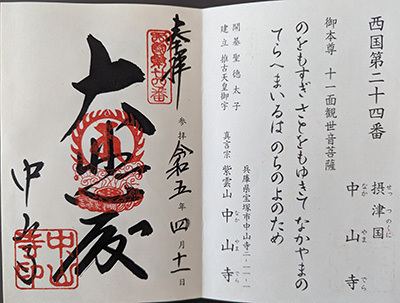 西国第二十四番
摂津国 中山寺
せっつのくに
なか やま でら
御本尊 十一面観世音菩薩
のをもすぎ さとをもゆきて なかやまの
てらへまいるは のちのよのため
開基 聖徳太子
建立 推古天皇御宇
兵庫県宝塚市中山寺二-一一-一
真言宗 紫雲山 中山寺
なか やま でら
奉拝
参拝 令和五年四月十一日
大悲殿
中山寺
中山寺印